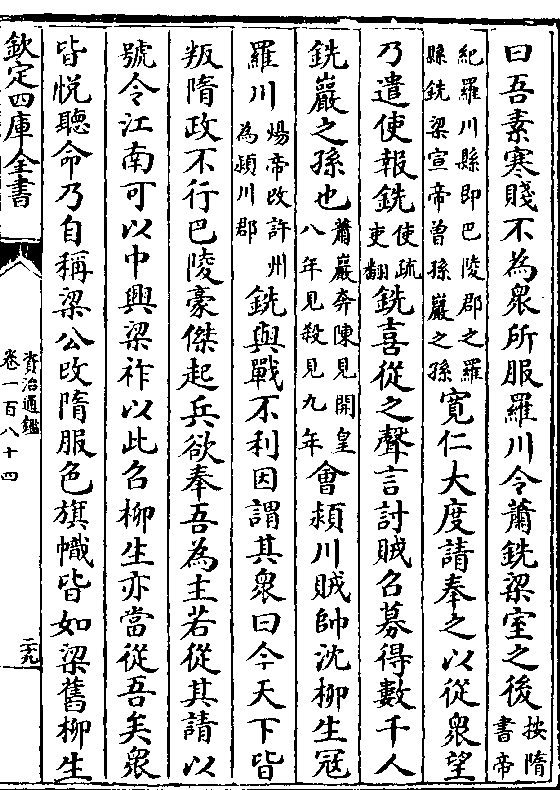 曰吾素寒賤不為衆所服羅川令蕭銑梁室之後
按隋
書帝
紀羅川縣即巴陵郡之羅
縣銑梁宣帝曾孫巖之孫
寛仁大度請奉之以從衆望
乃遣使報銑
使疏
吏翻
銑喜從之聲言討賊召募得數千人
銑巖之孫也
蕭巖奔陳見開皇
八年見殺見九年
會潁川賊帥沈柳生冦
羅川
煬帝改許州
為潁川郡
銑與戰不利因謂其衆曰今天下皆
叛隋政不行巴陵豪傑起兵欲奉吾為主若從其請以
號令江南可以中興梁祚以此召柳生亦當從吾矣衆
皆悦聽命乃自稱梁公改隋服色旗幟皆如梁舊柳生
欽定四庫全書
資治通鑑
卷一百八十四
二十九